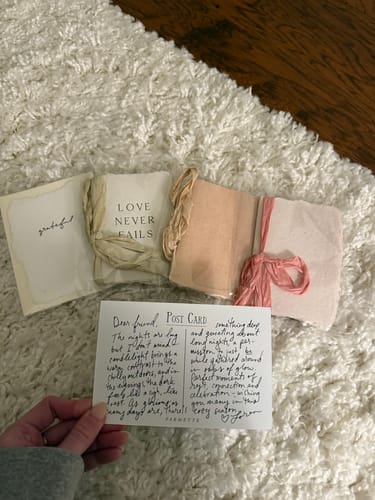 grateful
LOVE
NEVER
FAILS
POST CARD
Dear friend,
The nights are long
but I don't mind -
candlelight brings a
warm contrast to the
chilly outdoors, and in
the evenings, the dark
feels like a sigh, like
rest. As glorious as
many days are, there's
something deep
and quieting about
long nights, a per-
mission to just be
while gathered around
in orbs of glow.
Perfect moments of
rest, connection and
celebration - wishing
you many in this
cozy season,
FARMETTE